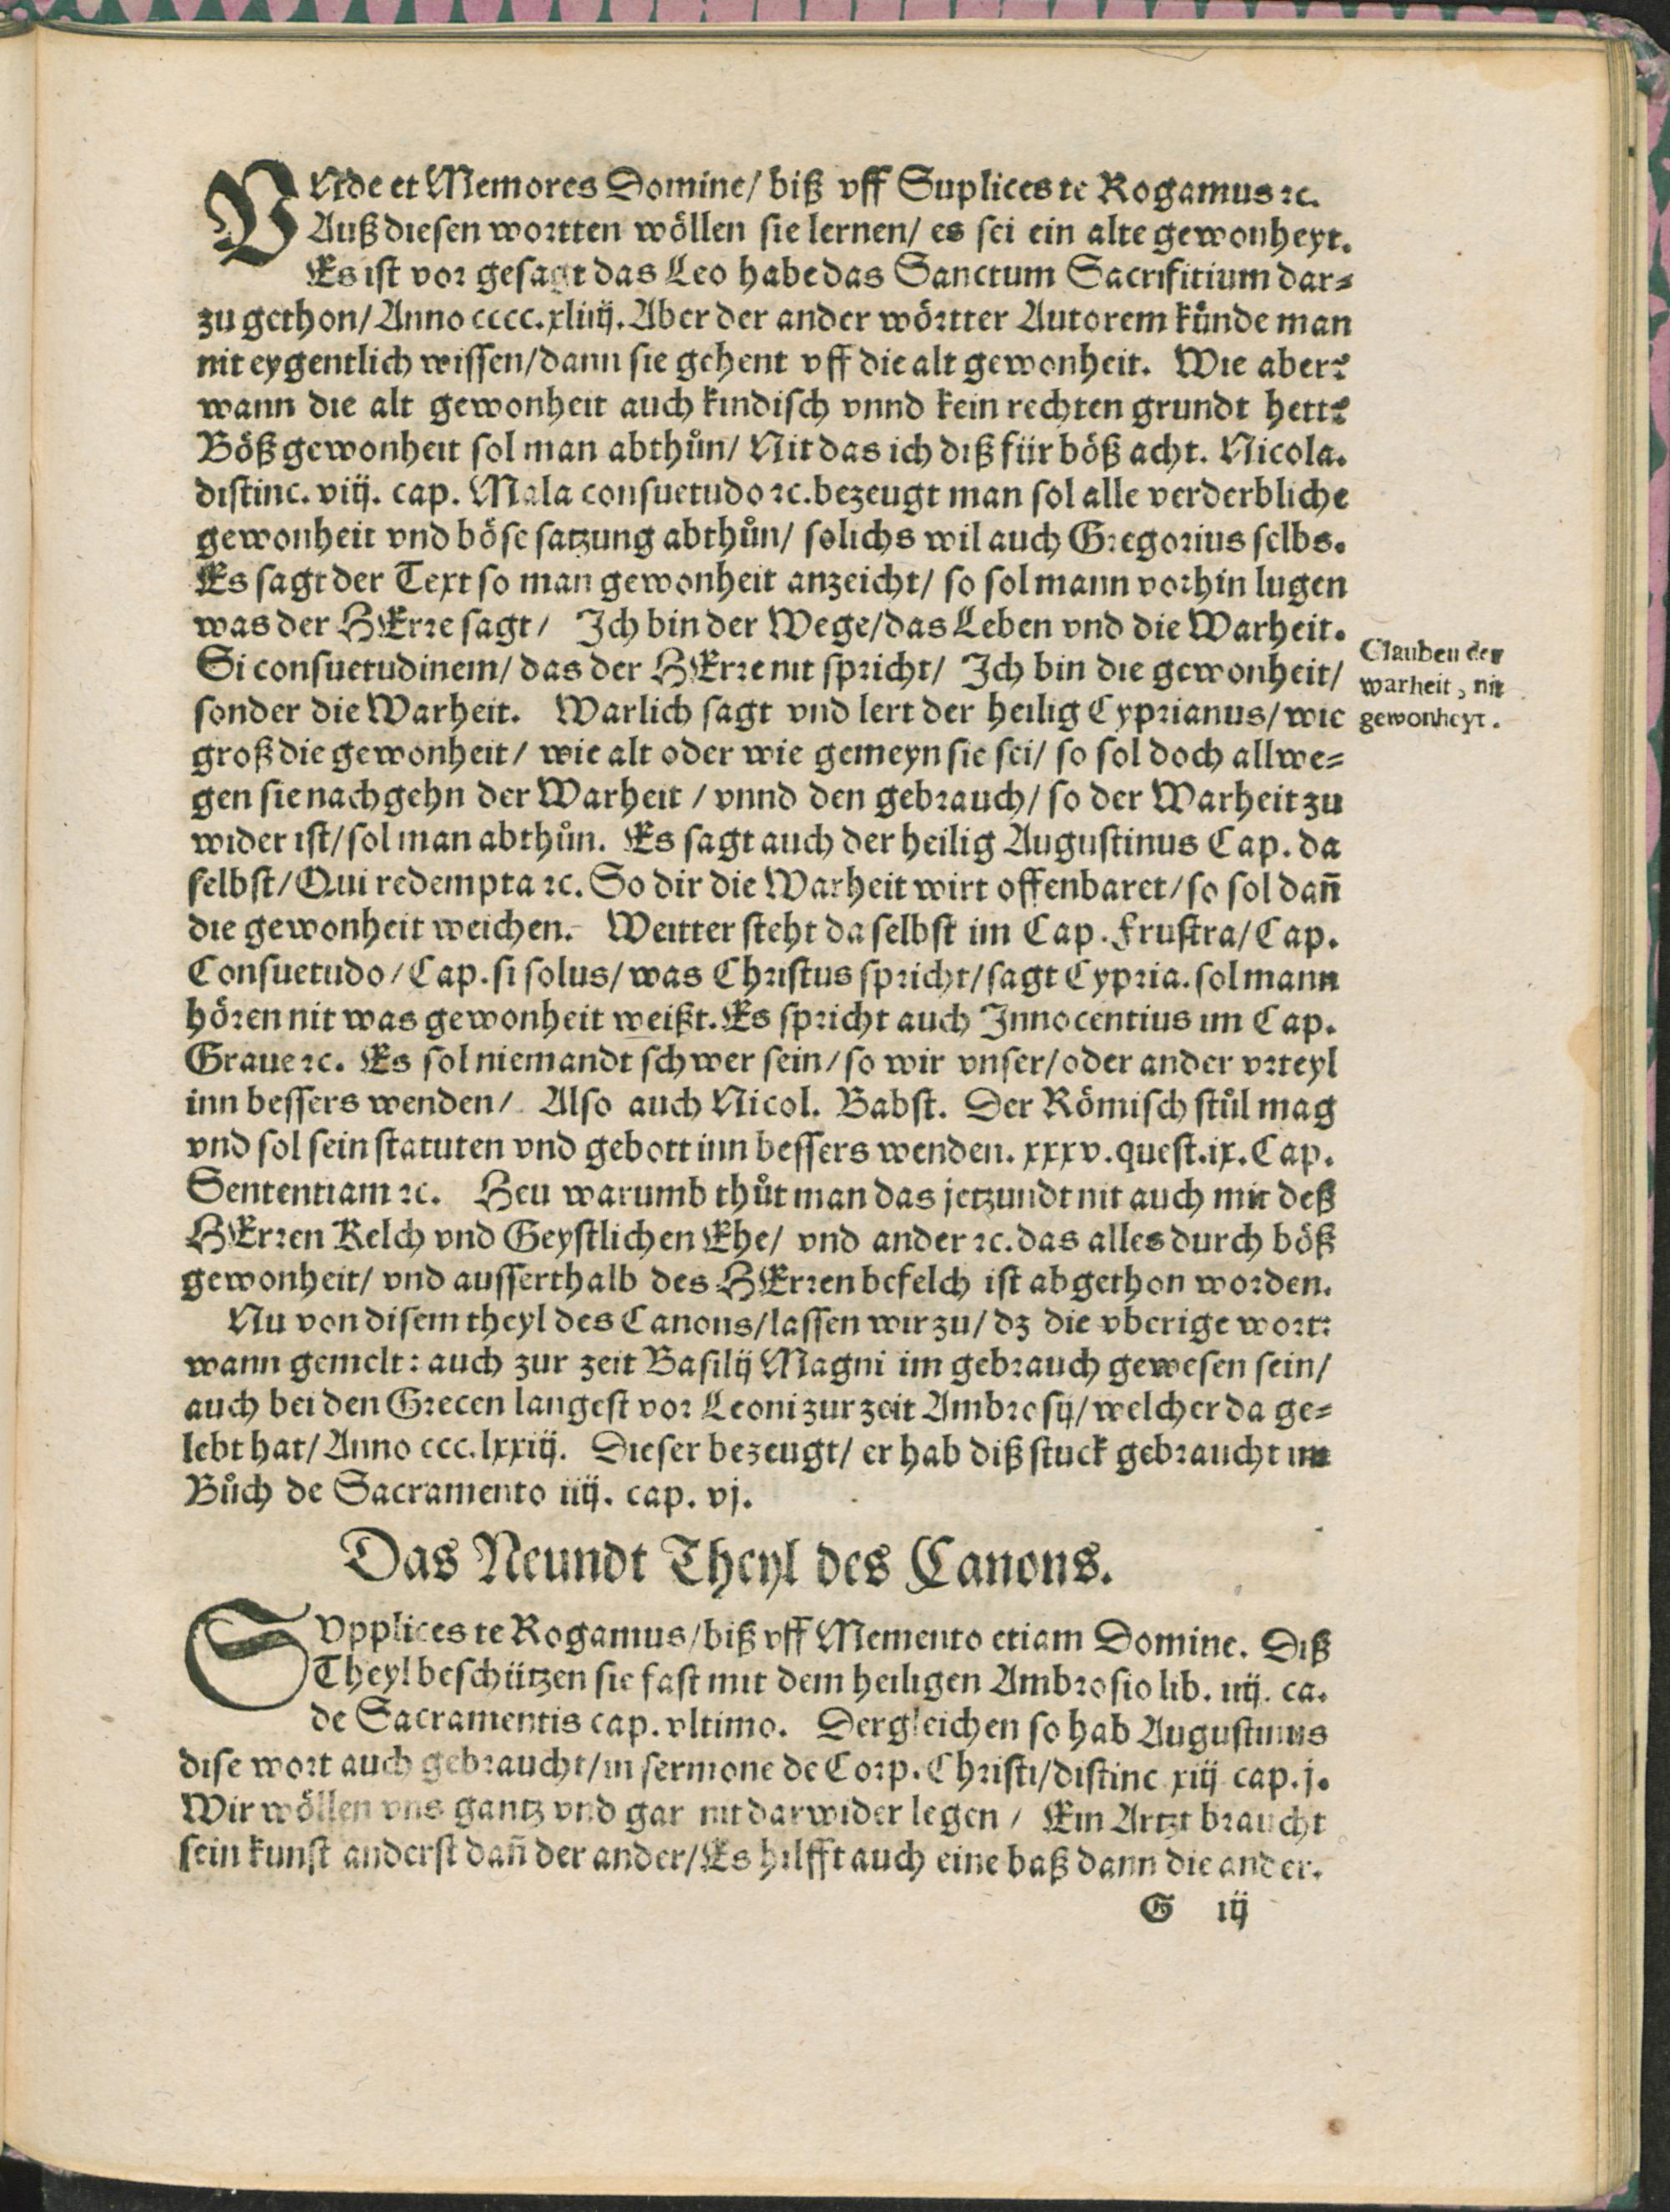 VNde et Memores Domine/ biß vff Suplices te Rogamus ꝛc.
Auß diesen wortten wöllen sie lernen/ es sei ein alte gewonheyt.
Es ist vor gesagt das Leo habe das Sanctum Sacrifitium dar⸗
zu gethon/ Anno cccc. xliiij. Aber der ander wörtter Autorem künde man
nit eygentlich wissen/ dann sie gehent vff die alt gewonheit. Wie aber?
wann die alt gewonheit auch kindisch vnnd kein rechten grundt hett?
Böß gewonheit sol man abthůn/ Nit das ich diß für böß acht. Nicola.
distinc. viij. cap. Mala consuetudo ꝛc. bezeugt man sol alle verderbliche
gewonheit vnd böse satzung abthůn/ solichs wil auch Gregorius selbs.
Es sagt der Text so man gewonheit anzeicht/ so sol mann vorhin lugen
was der HErre sagt/ Ich bin der Wege/ das Leben vnd die Warheit.
Si consuetudinem/ das der HErre nit spricht/ Ich bin die gewonheit/
sonder die Warheit. Warlich sagt vnd lert der heilig Cyprianus/ wie
groß die gewonheit/ wie alt oder wie gemeyn sie sei/ so sol doch allwe⸗
gen sie nachgehn der Warheit / vnnd den gebrauch/ so der Warheit zu
wider ist/ sol man abthůn. Es sagt auch der heilig Augustinus Cap. da
selbst/ Qui redempta ꝛc. So dir die Warheit wirt offenbaret/ so sol dañ
die gewonheit weichen. Weitter steht da selbst im Cap. Frustra/ Cap.
Consuetudo/ Cap. si solus/ was Christus spricht/ sagt Cypria. sol mann
hören nit was gewonheit weißt. Es spricht auch Innocentius im Cap.
Graue ꝛc. Es sol niemandt schwer sein/ so wir vnser/ oder ander vrteyl
inn bessers wenden/ Also auch Nicol. Babst. Der Römisch stůl mag
vnd sol sein statuten vnd gebott inn bessers wenden. xxxv. quest. ix. Cap.
Sententiam ꝛc. Heu warumb thůt man das jetzundt nit auch mit deß
HErren Kelch vnd Geystlichen Ehe/ vnd ander ꝛc. das alles durch böß
gewonheit/ vnd ausserthalb des HErren befelch ist abgethon worden.
Nu von disem theyl des Canons/ lassen wir zu/ dz die vberige wort:
wann gemelt: auch zur zeit Basilij Magni im gebrauch gewesen sein/
auch bei den Grecen langest vor Leoni zur zeit Ambrosij/ welcher da ge⸗
lebt hat/ Anno ccc. lxxiij. Dieser bezeugt/ er hab diß stuck gebraucht im
Bůch de Sacramento iiij. cap. vj.
Clauben der
warheit, nit
gewonheyt.
Das Neundt Theyl des Canons.
SVpplices te Rogamus/ biß vff Memento etiam Domine. Diß
Theyl beschützen sie fast mit dem heiligen Ambrosio lib. iiij. ca.
de Sacramentis cap. vltimo. Dergleichen so hab Augustinus
dise wort auch gebraucht/ in sermone de Corp. Christi/ distinc xiij cap. j.
Wir wöllen vns gantz vnd gar nit darwider legen / Ein Artzt braucht
sein kunst anderst dañ der ander/ Es hilfft auch eine baß dann die ander.
G iij